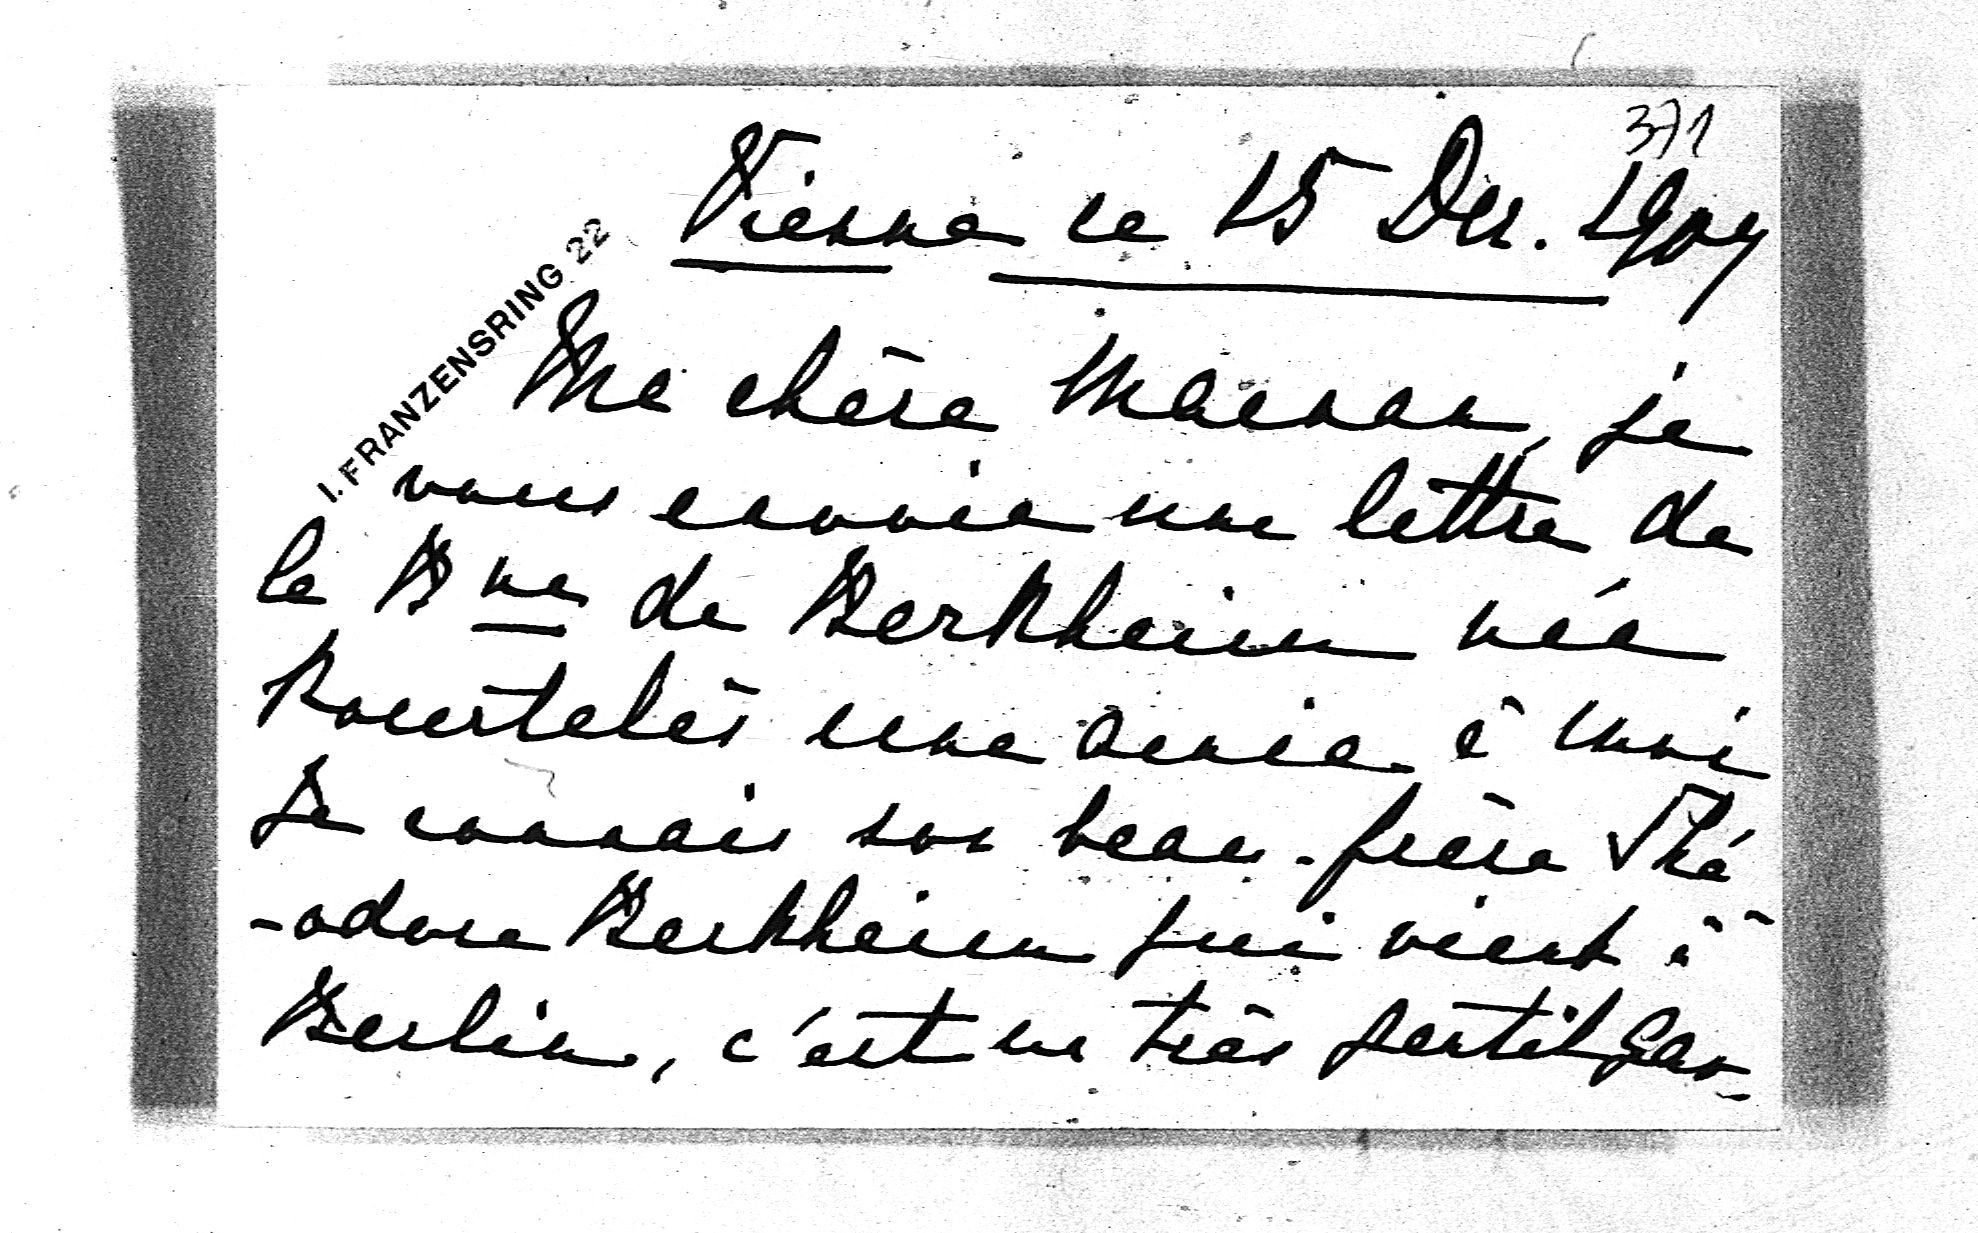 371
Vienne ce 15 Dec. 1909
I. FRANZENSRING 22
Ma chère Maman, je
vous envoie une lettre de
la Bne de Berkheim née
Pourtalès une amie à moi
Je connais son beau-frère Thé
-odore Berkheim qui vient à
Berlin, c'est un très gentil gar-